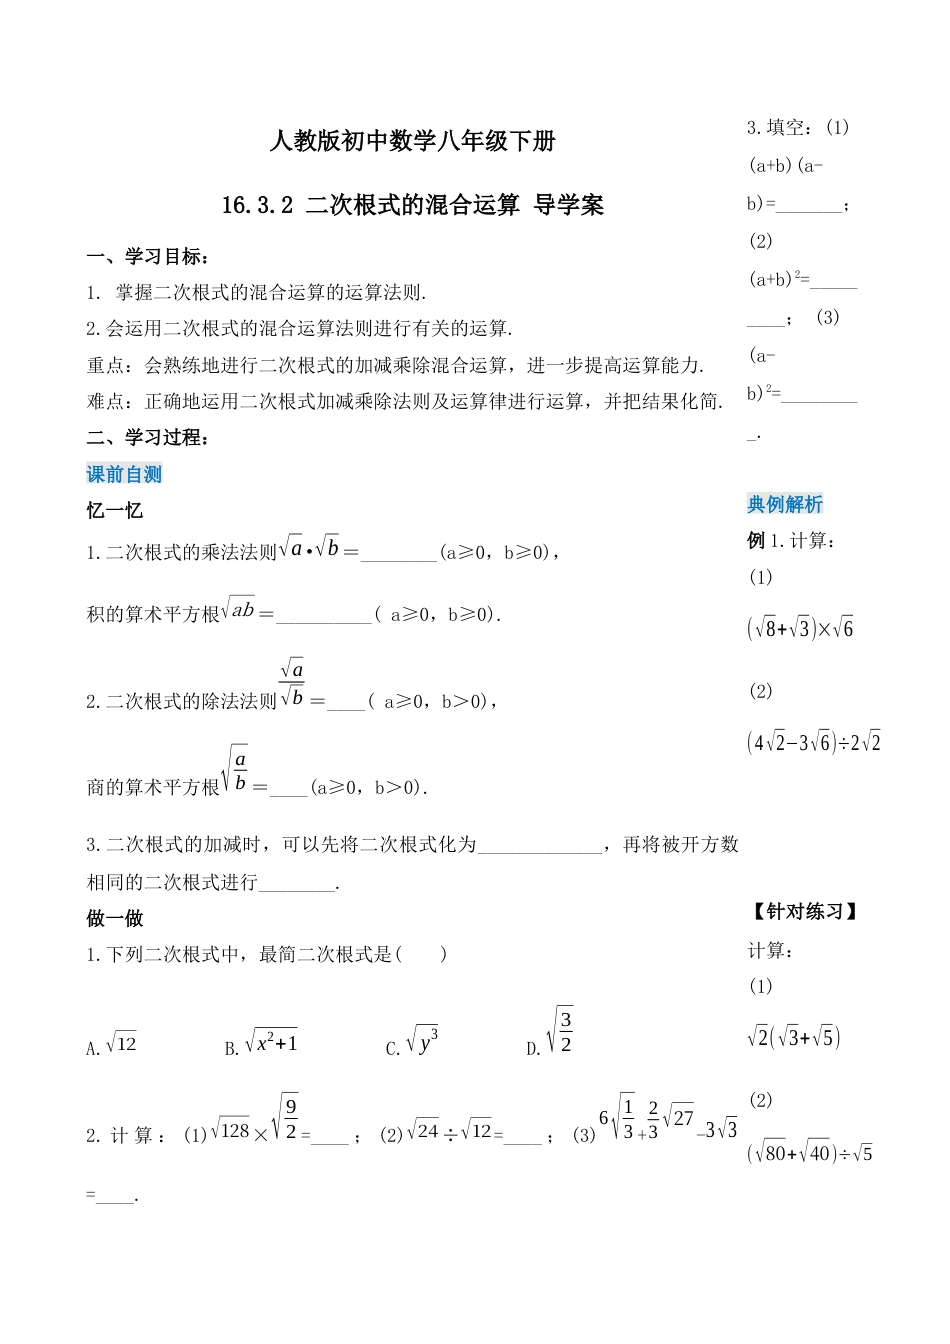 人教版初中数学八年级下册
16.3.2 二次根式的混合运算 导学案
一、学习目标：
1. 掌握二次根式的混合运算的运算法则.
2.会运用二次根式的混合运算法则进行有关的运算.
重点：会熟练地进行二次根式的加减乘除混合运算，进一步提高运算能力.
难点：正确地运用二次根式加减乘除法则及运算律进行运算，并把结果化简.
二、学习过程：
课前自测
忆一忆
1.二次根式的乘法法则√a•√b＝________(a≥0，b≥0)，
积的算术平方根√ab＝__________( a≥0，b≥0).
2.二次根式的除法法则√a/√b＝____( a≥0，b＞0)，
商的算术平方根√(a/b)＝____(a≥0，b＞0).
3.二次根式的加减时，可以先将二次根式化为_____________，再将被开方数
相同的二次根式进行________.
做一做
1.下列二次根式中，最简二次根式是(    )
A.√12 B.√(x²+1) C.√y³ D.√(3/2)
2. 计 算 ： (1)√128×√(9/2)=____ ；(2)√24÷√12=____ ；(3)6√(1/3)+2/3√27−3√3
=____.
3.填空：(1)
(a+b)(a-
b)=_______；
(2)
(a+b)²=_____
____； (3)
(a-
b)²=________
_.
典例解析
例 1.计算：
(1)
(√8+√3)×√6
(2)
(4√2−3√6)÷2√2
【针对练习】
计算：
(1)
√2(√3+√5)
(2)
(√80+√40)÷√5